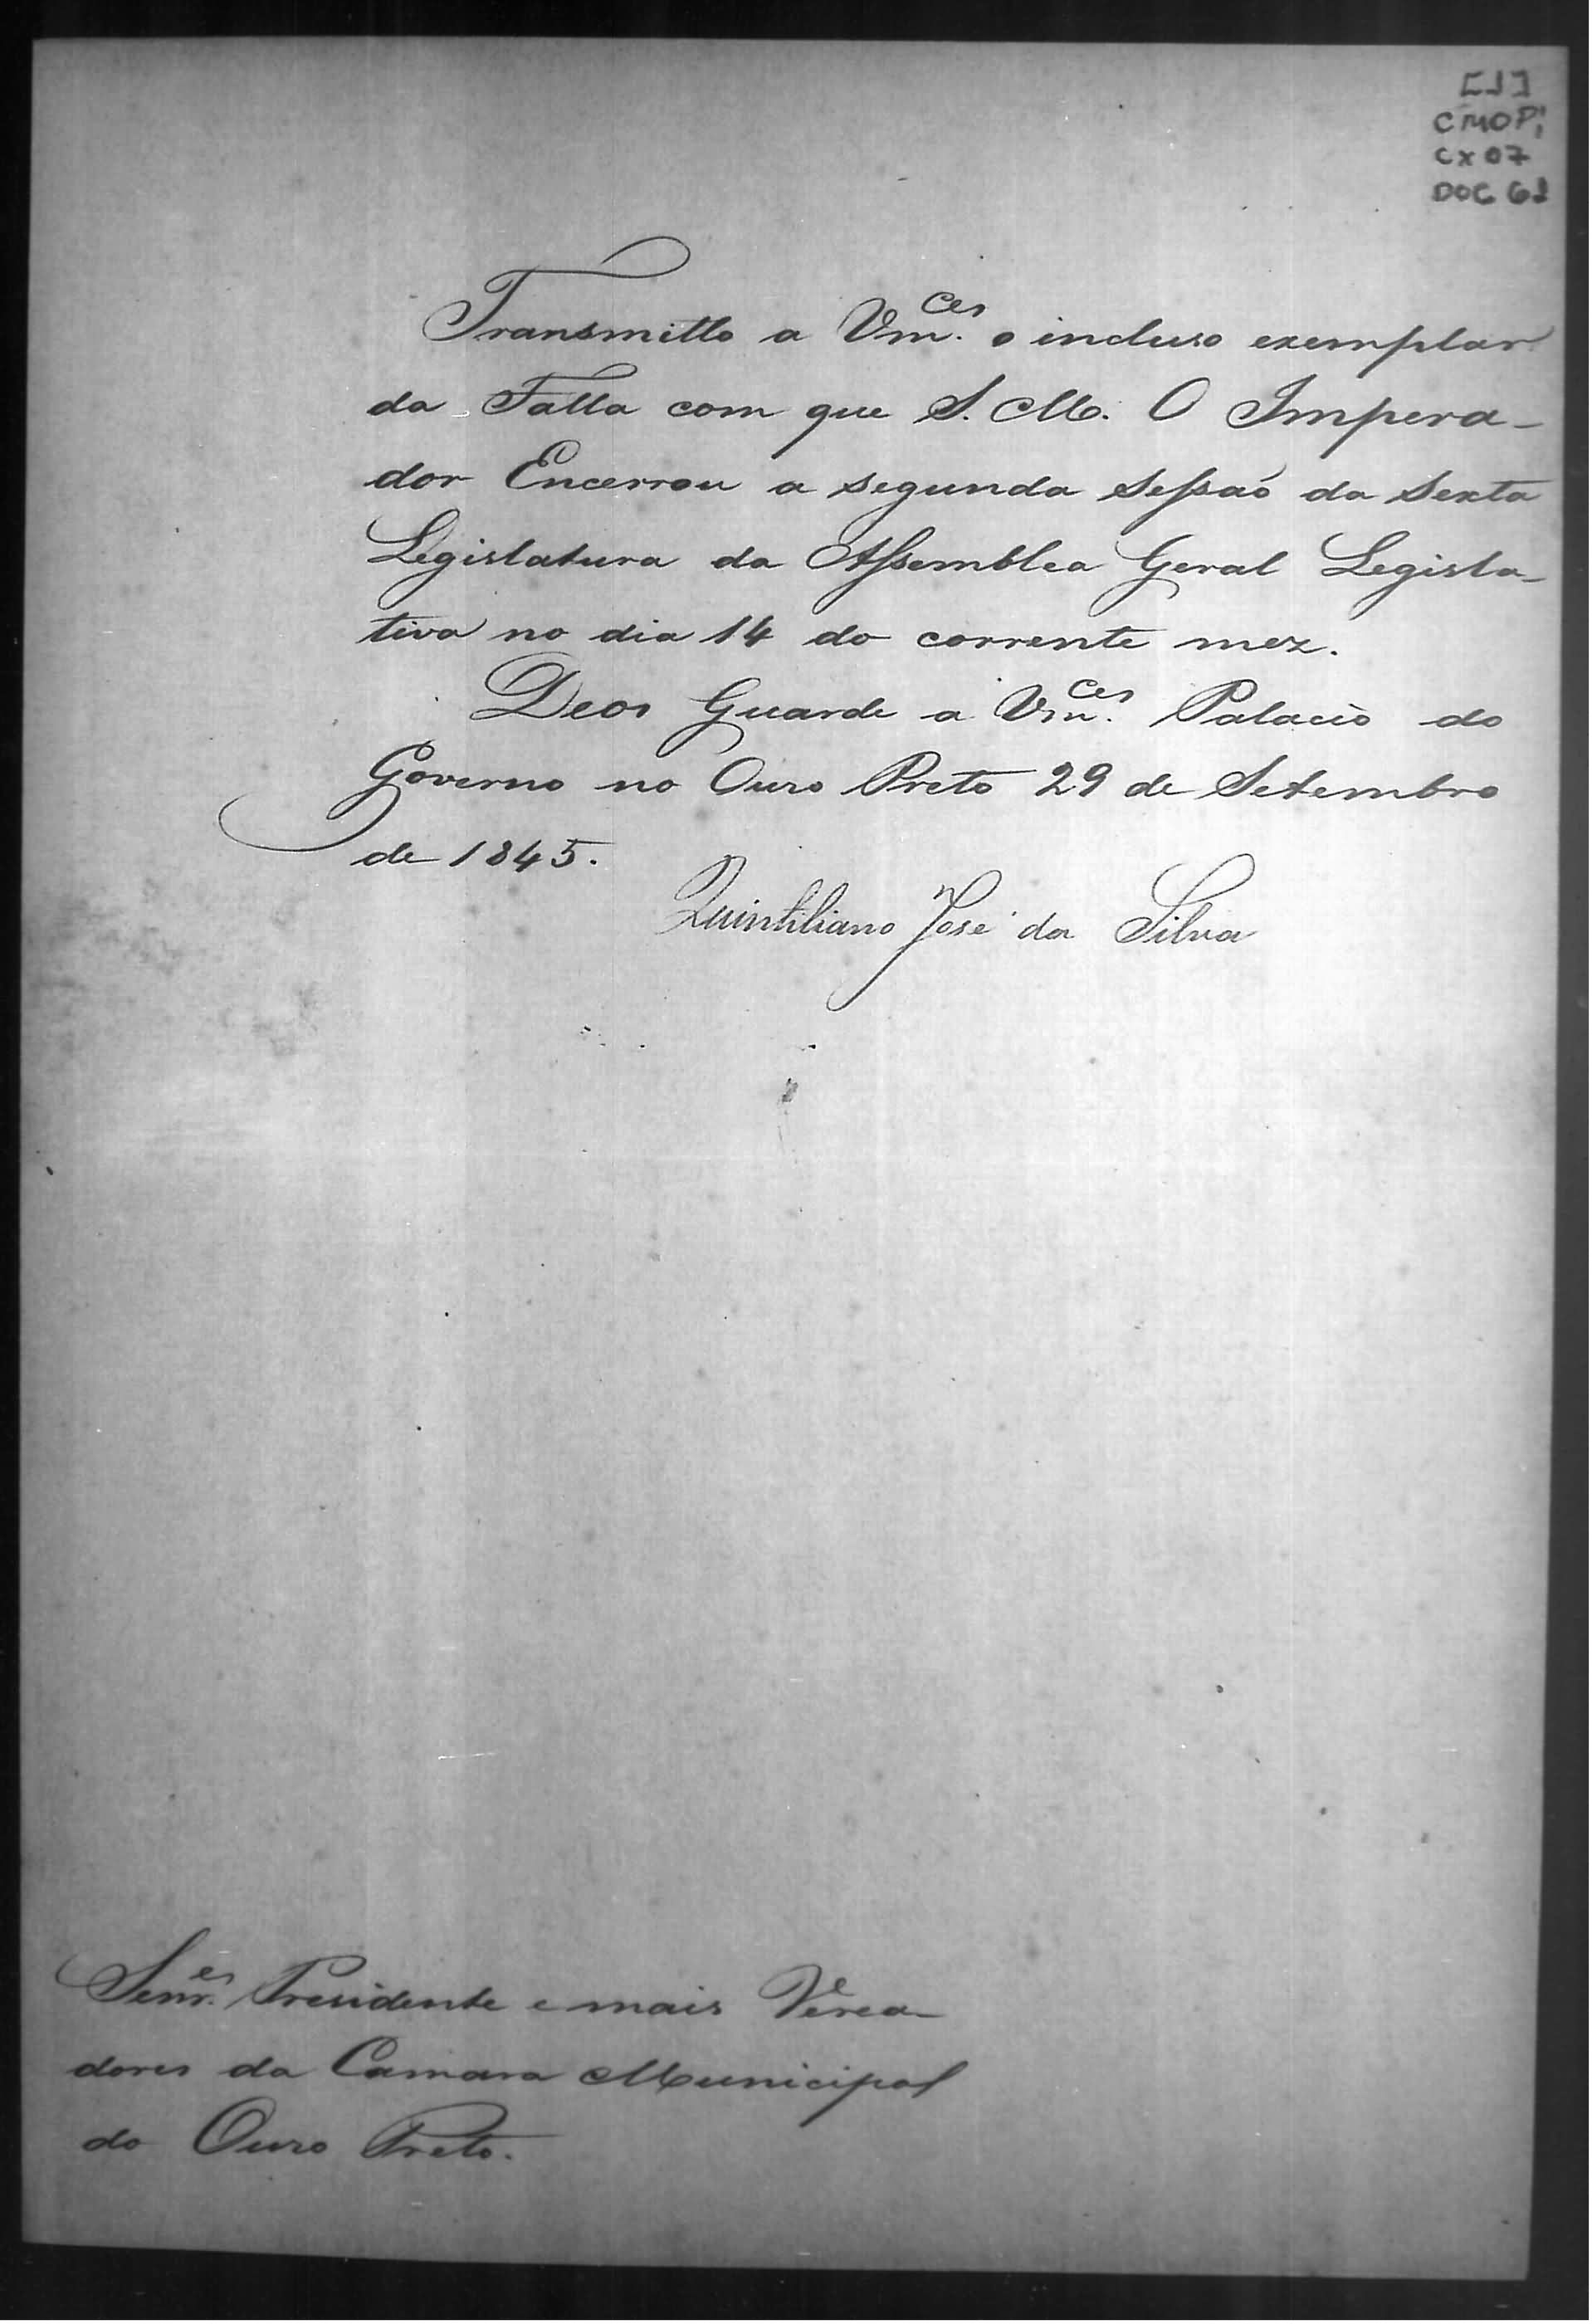 [1]
CMOP,
CX 07
DOC 61
Transmitto a Vm.ces o incluso exemplar
da Falla com que S. M. O Impera-
dor Encerrou a segunda Sessaõ da Sexta
Legislatura da Assemblea Geral Legisla-
tiva no dia 14 do corrente mez.
Deos Guarde a Vm.ces Palacio do
Governo no Ouro Preto 29 de Setembro
de 1845.
Quintiliano José da Silva
Senr.es Presidente e mais Verea-
dores da Camara Municipal
do Ouro Preto.